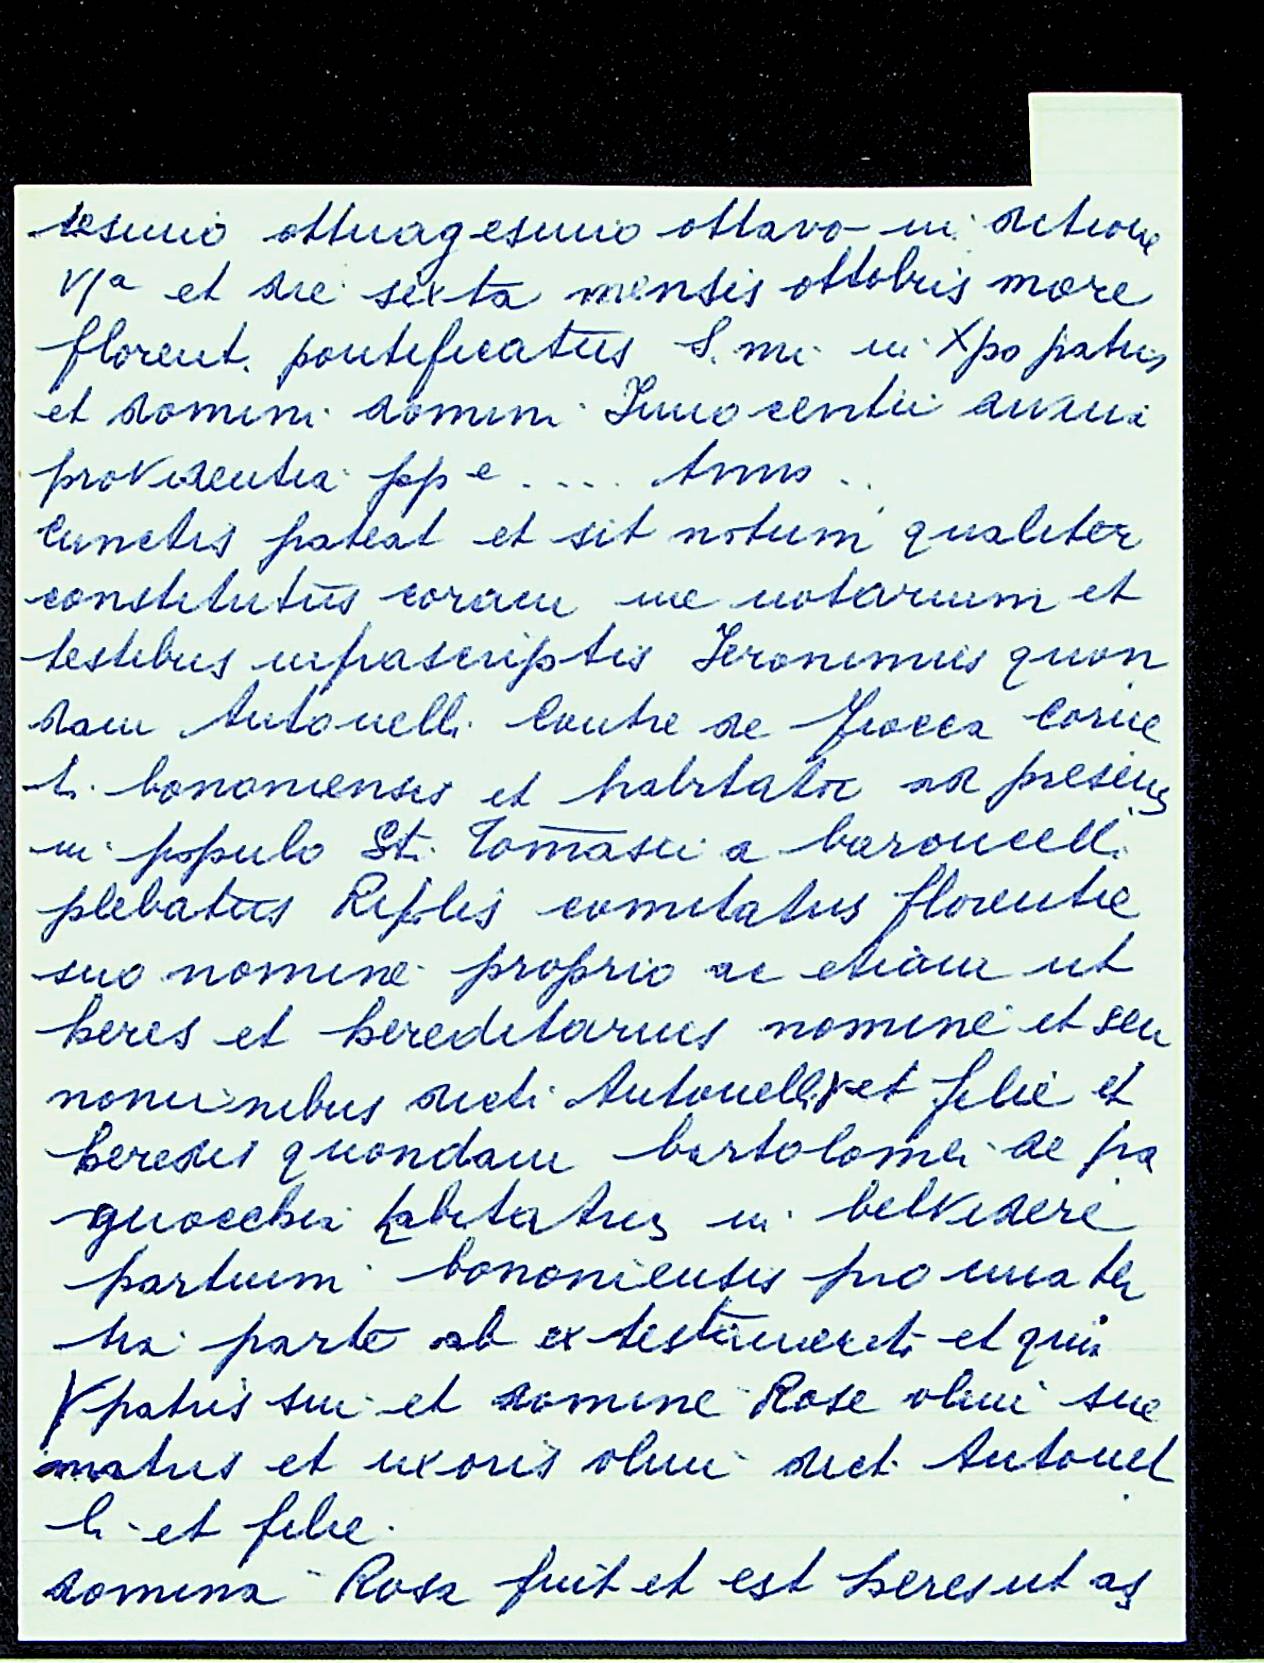 tesimo ottuagesimo ottavo in dictione
VIa et die sexta mensis ottobris more
florent. pontificatus S.mi in Xpo patris
et domini domini Innocentii divina
providentia pp e .... Anno ..
Cunctis pateat et sit notum qualiter
constitutus coram me notarium et
testibus infrascriptis Jeronimus quon
dam Antonelli Contri de Rocca Corne
ti bononiensis et habitator ad presens
in populo Sti Tomasii a baroncelli
plebatus Ripolis comitatus florentie
suo nomine proprio ac etiam ut
heres et hereditarius nomine et seu
nominibus dicti Antonelli et filii et
heredis quondam bartolomei de pa
habitatus in belvidere
partium bononientis pro una ter
tia parte ab ex testamento et qui
patris sui et domine Rose olim sue
matris et uxoris olim dict Antonel
li et filie
domina Rosa fuit et est heres ut as